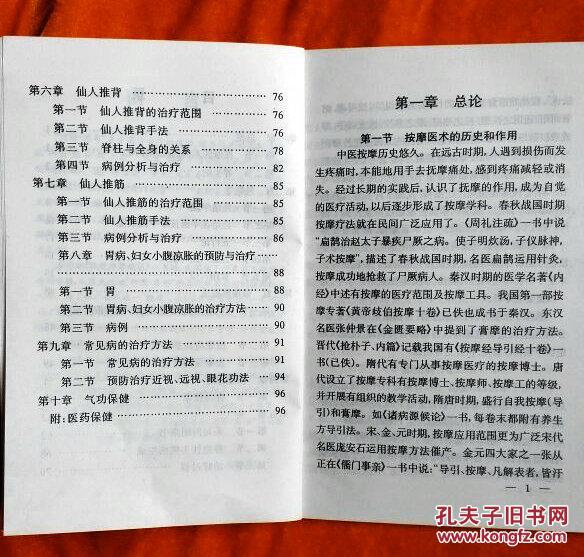 第六章 仙人推背 …………………… 76
第一节 仙人推背的治疗范围 ………… 76
第二节 仙人推背手法 ……………… 76
第三节 脊柱与全身的关系 ………… 78
第四节 病例分析与治疗 …………… 82
第七章 仙人推筋 …………………… 85
第一节 仙人推筋的治疗范围 ………… 85
第二节 仙人推筋手法 ……………… 85
第三节 病例分析与治疗 …………… 86
第八章 胃病、妇女小腹凉胀的预防与治疗 ……
…………………… 88
第一节 胃 …………………… 88
第二节 胃病、妇女小腹凉胀的治疗方法 … 90
第三节 病例 …………………… 90
第九章 常见病的治疗方法 …………… 91
第一节 常见病的治疗方法 ………… 91
第二节 预防治疗近视、远视、眼花功法 … 94
第十章 气功保健 …………………… 96
附:医药保健 …………………… 96
第一章 总论
第一节 按摩医术的历史和作用
中医按摩历史悠久。在远古时期,人遇到损伤而发
生疼痛时,本能地用手去抚摩痛处,感到疼痛减轻或消
失。经过长期的实践后,认识了抚摩的作用,成为自觉
的医疗活动,以后逐步形成了按摩学科。春秋战国时期
按摩疗法就在民间广泛应用了。《周礼注疏》一书中说
"扁鹊治赵太子暴疾尸厥之病。使子明炊汤,子仪脉神,
子术按摩",描述了春秋战国时期,名医扁鹊运用针灸、
按摩成功地抢救了尸厥病人。秦汉时期的医学名著《内
经》中述有按摩的医疗范围及按摩工具。我国第一部按
摩专著《黄帝歧伯按摩十卷》已佚也成书于秦汉。东汉
名医张仲景在《金匮要略》中提到了膏摩的治疗方法。
晋代《抢朴子、内篇》记载我国有《按摩经导引经十卷》一
书(已佚)。隋代有专门从事按摩医疗的按摩博士。唐
代设立了按摩专科有按摩博士、按摩师、按摩工的等级,
并开展有组织的教学活动,隋唐时期,盛行自我按摩(导
引)和膏摩。如《诸病源候论》一书,每卷末都附有养生
方导引法。宋、金、元时期,按摩应用范围更为广泛宋代
名医庞安石运用按摩方法催产。金元四大家之一张从
正在《儒门事亲》一书中说:"导引、按摩、凡解表者,皆汗
— 1 —
孔夫子旧书网